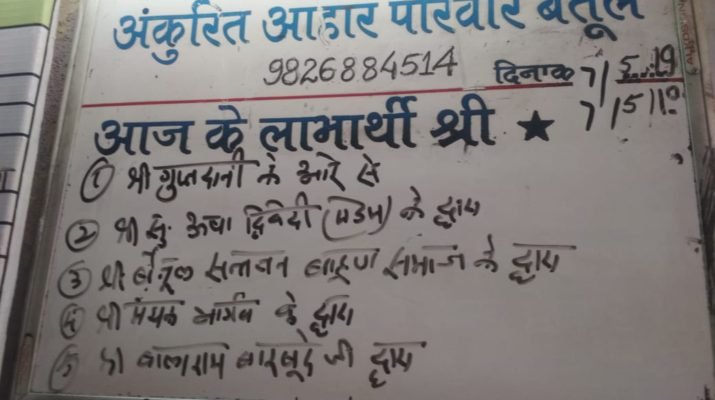 अंकुरित आहार परिवार बैतूल
9826884514 दिनांक 7/5/19
7/5/19
आज के लाभार्थी श्री ★
① श्री गुप्तदानी के ओर से
② श्री सु. ऊषा द्विवेदी (मेडम) के द्वारा
③ श्री बैतूल सनातन ब्राह्मण समाज के द्वारा
④ श्री मयंक भार्गव के द्वारा
⑤ श्री बालाराम बारबुदे जी द्वारा